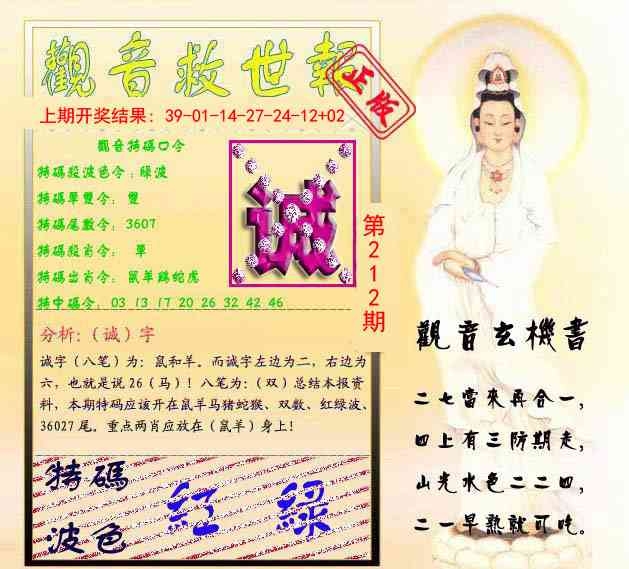 觀音救世報
正版
上期开奖结果：39-01-14-27-24-12+02
觀音特碼口令
特碼殺波色令：綠波
特碼單雙令： 雙
特碼尾數令： 3607
特碼殺肖令： 單
特碼出肖令： 鼠羊鷄蛇虎
特中碼令： 03 13 17 20 26 32 42 46
诚
第212期
分析：（诚）字
诚字（八笔）为：鼠和羊。而诚字左边为二，右边为
六，也就是说26（马）！八笔为：（双）总结本报资
料，本期特码应该开在鼠羊马猪蛇猴、双数、红绿波、
36027尾。重点两肖应放在（鼠羊）身上！
特碼
波色
紅 綠
觀音玄機書
二七當來再合一，
四上有三防期走，
山光水色二二四，
二一早熟就可吃。